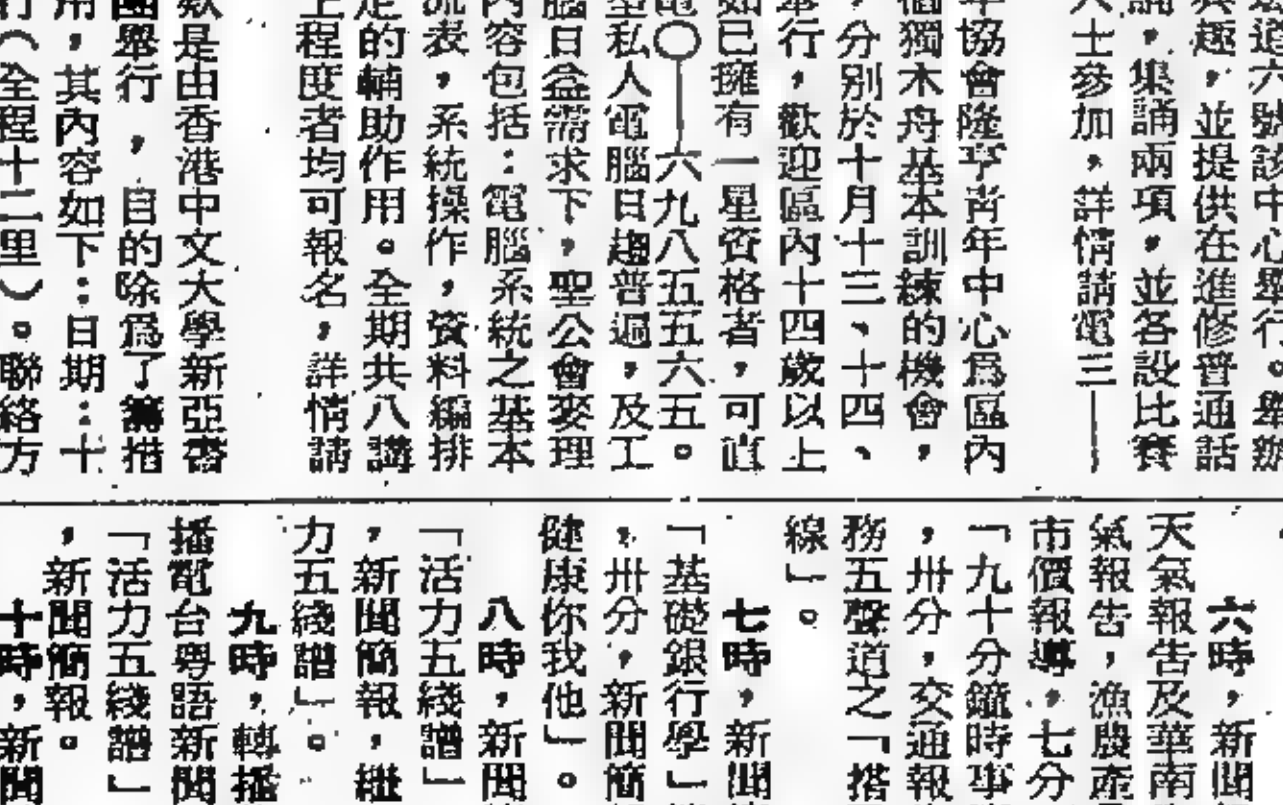 道六號該中心舉行。舉辦
興趣，並提供在進修普通話
誦，集誦兩項，並各設比賽
人士參加，詳情請電三—
年協會隆亨青年中心爲區內
個獨木舟基本訓練的機會，
，分別於十月十三、十四、
舉行，歡迎區內十四歲以上
如已擁有一星資格者，可直
電〇—六九八五五六五。
型私人電腦日趨普遍，及工
腦日益需求下，聖公會麥理
內容包括：電腦系統之基本
流表，系統操作，資料編排
定的輔助作用。全期共八講
上程度者均可報名，詳情請
款是由香港中文大學新亞書
團舉行，目的除爲了籌措
用，其內容如下：日期：十
行（全程十二里）。聯絡方
六時，新聞
天氣報告及華南
氣報告，漁農產
市價報導，七分
「九十分鐘時事
，卅分，交通報
務五聲道之「搭
線」。
七時，新聞
「基礎銀行學」
，卅分，新聞簡
健康你我他」。
八時，新聞
「活力五綫譜」
，新聞簡報，繼
力五綫譜」。
九時，轉播
播電台粵語新聞
「活力五綫譜」
，新聞簡報。
十時，新聞